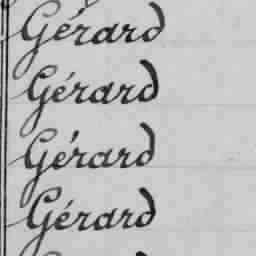 Gérard
Gérard
Gérard
Gérard